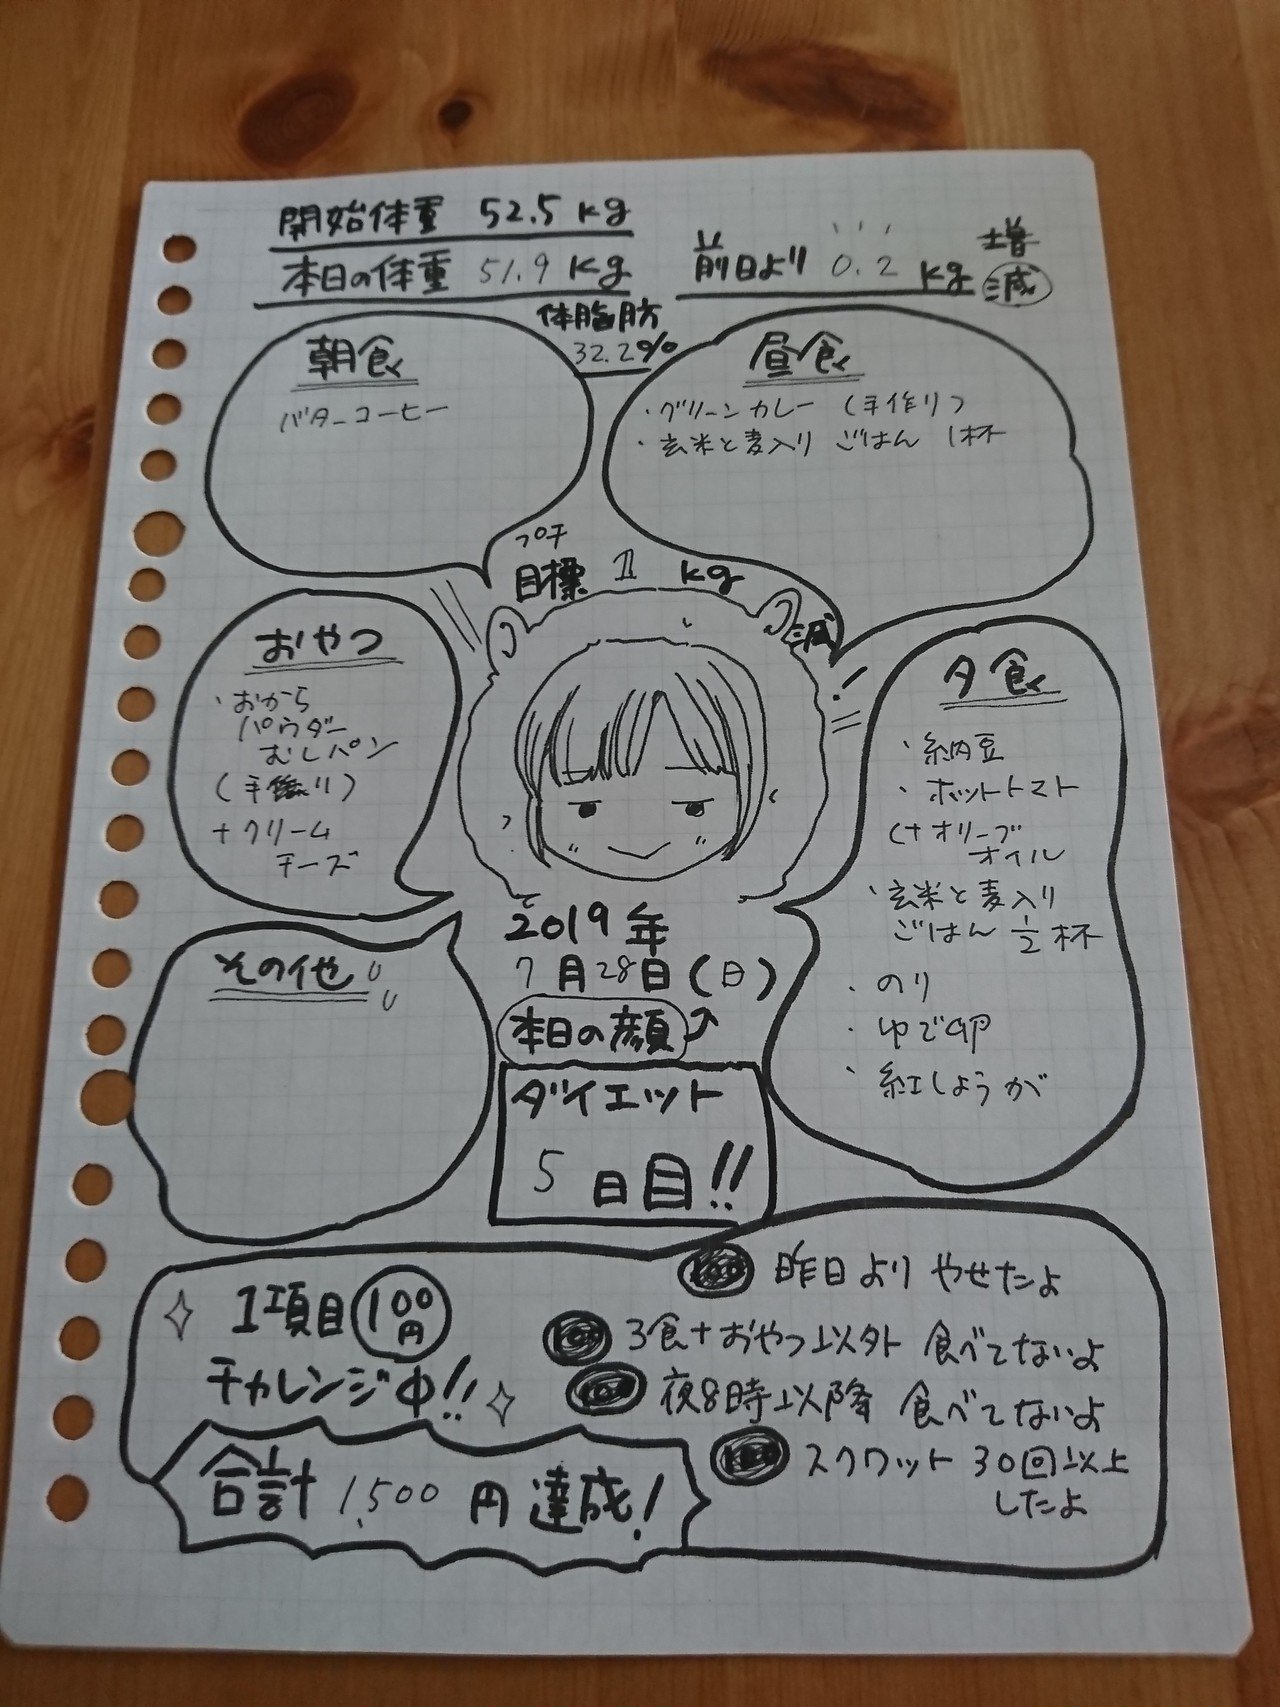 開始体重 52.5 kg
本日の体重 51.9 kg
前日より 0.2 kg 増
減
体脂肪
32.2%
朝食
バターコーヒー
昼食
・グリーンカレー (手作り)
・玄米と麦入り ごはん 1杯
プチ
目標 1 kg
減
!
おやつ
・おから
パウダー
むしパン
(手作り)
+クリーム
チーズ
夕食
・納豆
・ホットトマト
(+オリーブ
オイル
・玄米と麦入り
ごはん 1/2 杯
・のり
・ゆで卵
・紅しょうが
その他
2019年
7月28日(日)
本日の顔
ダイエット
5日目!!
1項目100円
チャレンジ中!!
100 昨日より やせたよ
100 3食+おやつ以外 食べてないよ
100 夜8時以降 食べてないよ
100 スクワット 30回以上
したよ
合計 1,500 円 達成!